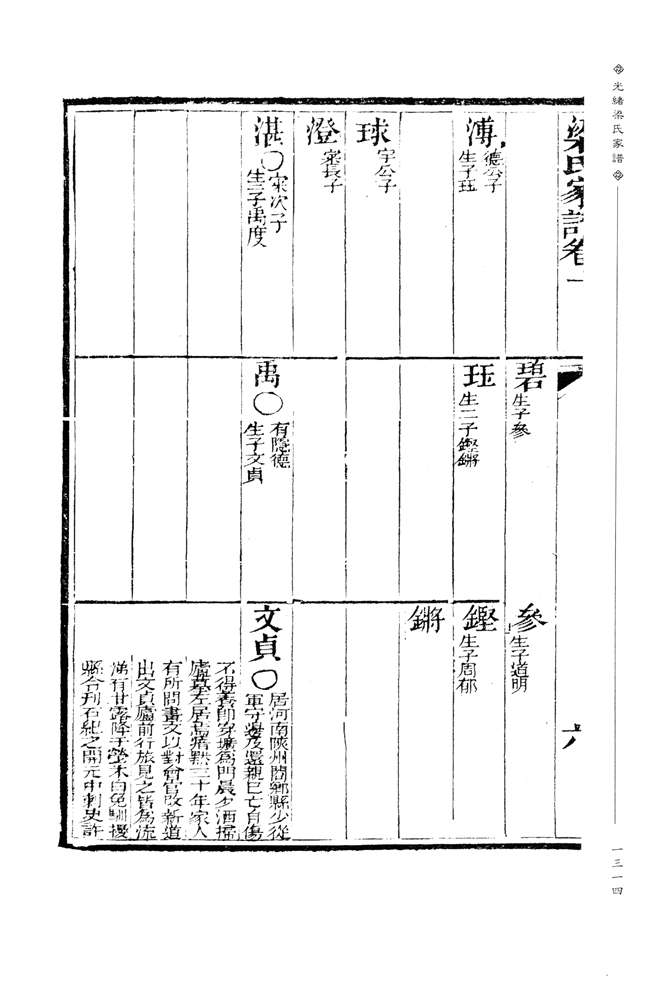 光緒梁氏家譜
梁氏家譜卷一
溥
德公子
生子珏
球
宇公子
澄
寀長子
湛〇
寀次子
生二子禹度
碧
生子參
珏
生二子鏗鏘
禹〇
有隱德
生子文貞
參
生子道明
鏗
生子周郁
鏘
文貞〇
居河南陝州閿鄉縣少從
軍守邊及還親已亡自傷
不得養即穿壙爲門晨夕洒掃
廬墓左居喪瘖默三十年家人
有所問畫文以對會官改新道
出文貞廬前行旅見之皆爲流
涕有甘露降于塋木白兔馴擾
縣令刊石紀之開元中刺史許
六
一三一四